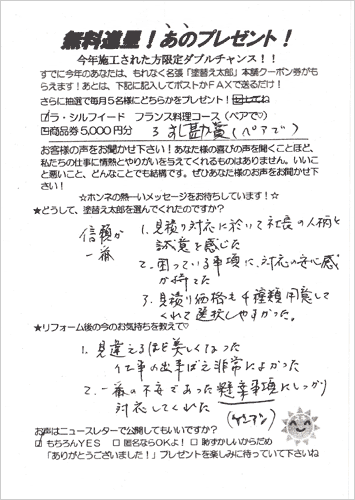 無料進呈！あのプレゼント！
今年施工された方限定ダブルチャンス！！
すでに今年のあなたは、もれなく名張「塗替え太郎」本舗クーポン券がも
らえます！あとは、下記に記入してポストかＦＡＸで送るだけ！
さらに抽選で毎月５名様にどちらかをプレゼント！
ラ・シルフィード　フランス料理コース（ペアで♡）
商品券５,０００円分　3（ペアで）
お客様の声をお聞かせ下さい！あなた様の喜びの声を聞くことほど、
私たちの仕事に情熱とやりがいを与えてくれるものはありません。いいこ
と悪いこと、どんなことでも結構です。ぜひあなた様のお声をお聞かせ下
さい！
☆ホンネの熱ーいメッセージをお待ちしています！☆
★どうして、塗替え太郎を選んでくれたのですか？
信頼が
一番
1. 見積り対応に於いて社長の人柄と
誠意を感じた
2. 困っている事項に、対応の安心感
が持てた
3. 見積り価格も4種類用意して
くれて選択しやすかった。
★リフォーム後の今のお気持ちを教えて♡
1. 見違えるほど美しくなった
仕事の出来ばえ非常によかった
2. 一番の不安であった懸案事項にしっかり
対応してくれた
お声はニュースレターで公開してもいいですか？
☑ もちろんＹＥＳ　□ 匿名ならＯＫよ！　□ 恥ずかしいからだめ
「ありがとうございました！」プレゼントを楽しみに待っていて下さいね